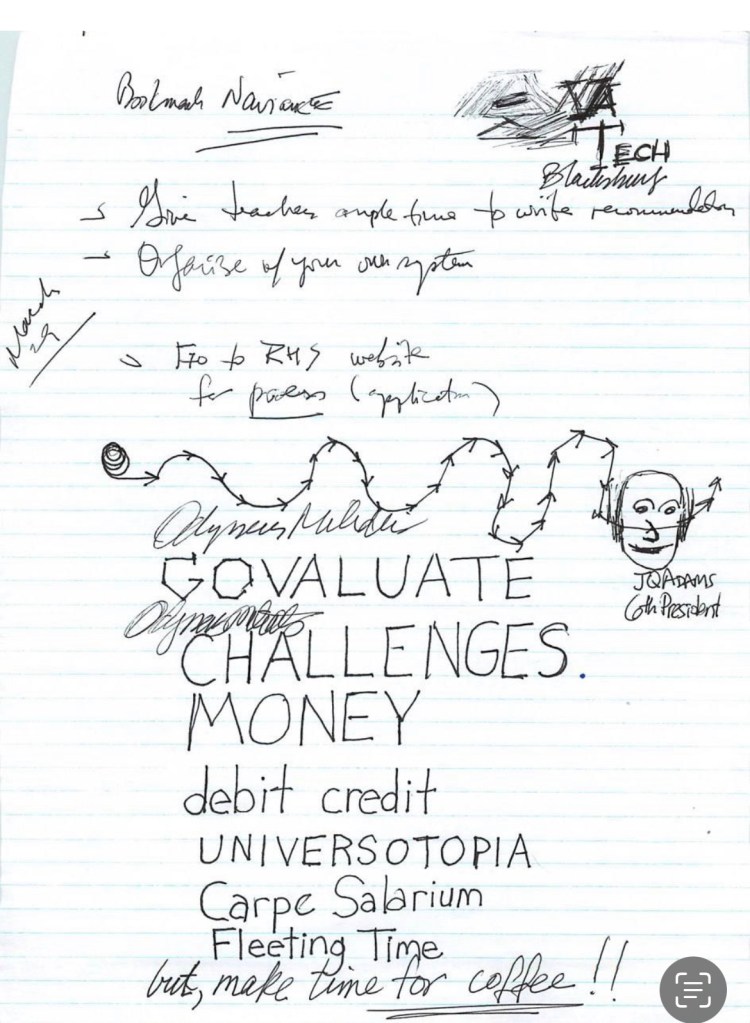 Bookmark Naviance
VA
TECH
Blacksburg
Give teachers ample time to write recommendation
Organize w/ your own system
March
29
Go to RHS website
for process (application)
Odysseus
GOVALUATE
JQADAMS
6th President
CHALLENGES.
MONEY
debit credit
UNIVERSOTOPIA
Carpe Salarium
Fleeting Time
but, make time for coffee!!